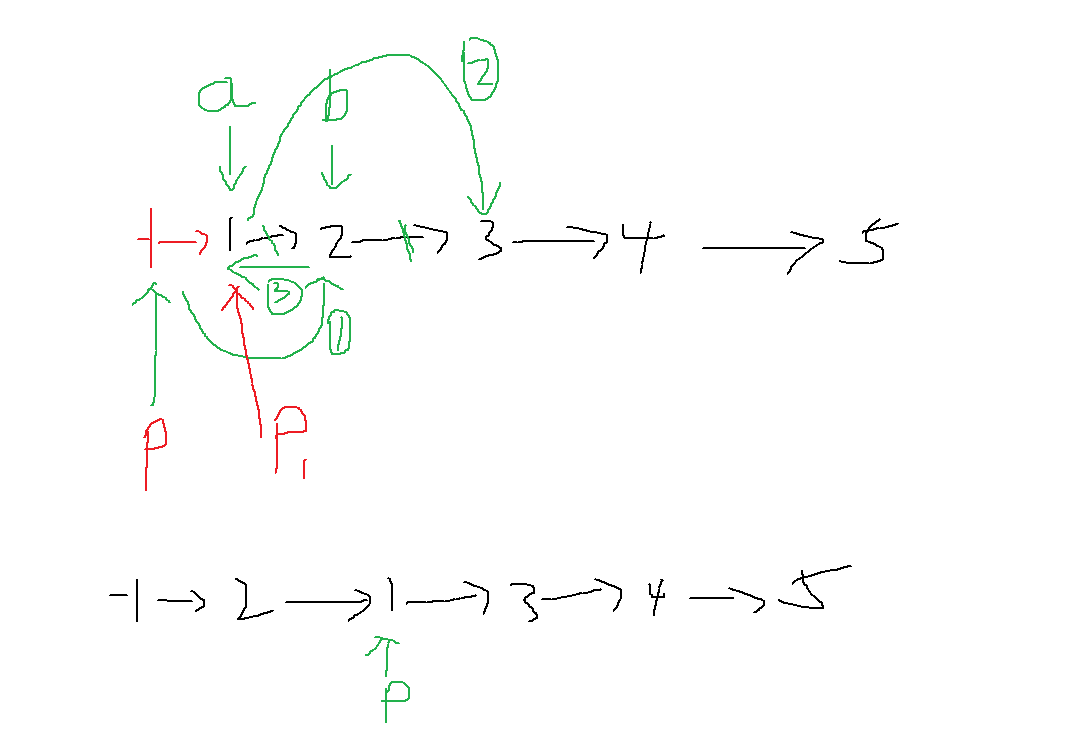 ②
a b
-1 → 1 → 2 → 3 → 4 → 5
③
①
p P₁
-1 → 2 → 1 → 3 → 4 → 5
p